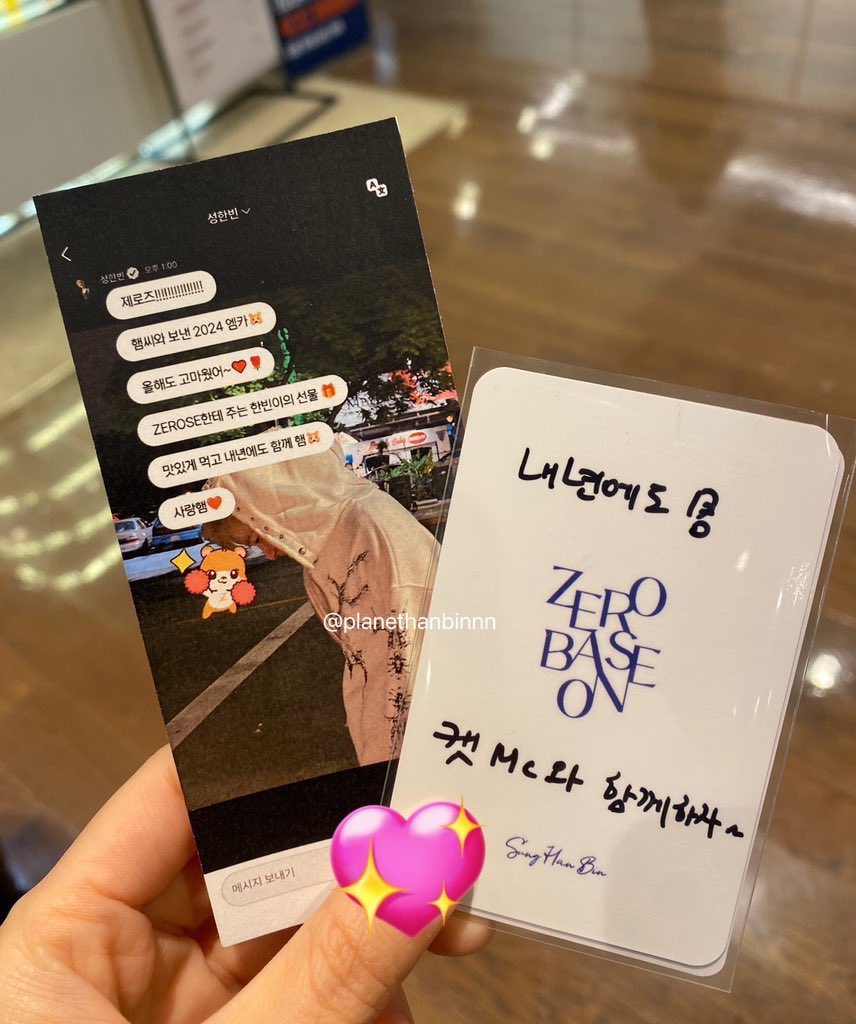 성한빈
성한빈 오후 1:00
제로즈!!!!!!!!!!!!!!
햄씨와 보낸 2024 엠카🐹
올해도 고마웠어~❤️🌹
ZEROSE한테 주는 한빈이의 선물 🎁
맛있게 먹고 내년에도 함께 햄🐹
사랑햄❤️
@planethanbinnn
메시지 보내기
내년에도 콩
ZERO
BASE
ONE
캣 Mc와 함께하자~
Sung Han Bin